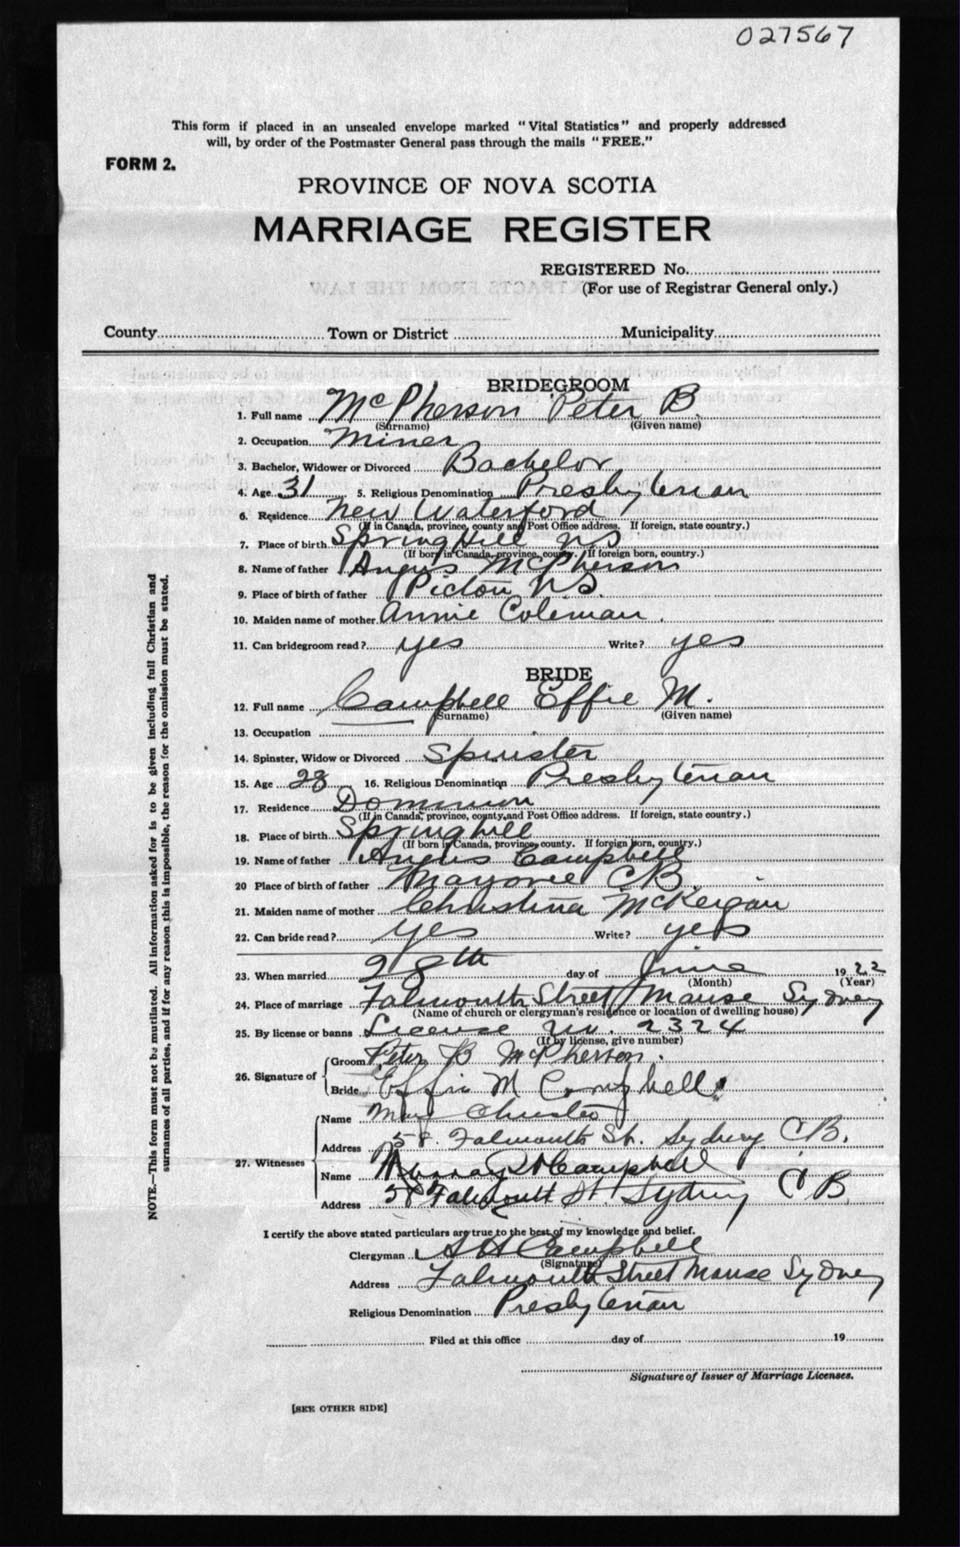 027567
This form if placed in an unsealed envelope marked "Vital Statistics" and properly addressed
will, by order of the Postmaster General pass through the mails "FREE."
FORM 2.
PROVINCE OF NOVA SCOTIA
MARRIAGE REGISTER
REGISTERED No.
(For use of Registrar General only.)
County Town or District Municipality
BRIDEGROOM
1. Full name McPherson Peter B.
(Surname) (Given name)
2. Occupation Miner
3. Bachelor, Widower or Divorced Bachelor
4. Age 31 5. Religious Denomination Presbyterian
6. Residence New Waterford
(If in Canada, province, county and Post Office address. If foreign, state country.)
7. Place of birth Springhill NS
(If born in Canada, province, county. If foreign born, country.)
8. Name of father Angus McPherson
9. Place of birth of father Pictou N.S.
10. Maiden name of mother Annie Coleman.
11. Can bridegroom read? yes Write? yes
BRIDE
12. Full name Campbell Effie M.
(Surname) (Given name)
13. Occupation
14. Spinster, Widow or Divorced Spinster
15. Age 28 16. Religious Denomination Presbyterian
17. Residence Dominion
(If in Canada, province, county, and Post Office address. If foreign, state country.)
18. Place of birth Springhill
(If born in Canada, province, county. If foreign born, country.)
19. Name of father Angus Campbell
20 Place of birth of father CB
21. Maiden name of mother Christina McKeigan
22. Can bride read? yes Write? yes
23. When married 28th day of June 1922
(Month) (Year)
24. Place of marriage Falmouth Street Manse Sydney
(Name of church or clergyman's residence or location of dwelling house)
25. By license or banns License No. 2324
(If by license, give number)
26. Signature of
Groom Peter B McPherson.
Bride Effie M Campbell
27. Witnesses
Name
Address 58 Falmouth St. Sydney C.B.
Name Murray Campbell
Address 58 Falmouth St. Sydney C B.
I certify the above stated particulars are true to the best of my knowledge and belief.
Clergyman A H Campbell
(Signature)
Address Falmouth Street Manse Sydney
Religious Denomination Presbyterian
Filed at this office day of 19
Signature of Issuer of Marriage Licenses.
[SEE OTHER SIDE]
NOTE.—This form must not be mutilated. All information asked for is to be given including full Christian and
surnames of all parties, and if for any reason this is impossible, the reason for the omission must be stated.